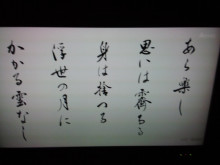 あら楽し
思いは霽るる
身は捨つる
浮世の月に
かかる雲なし